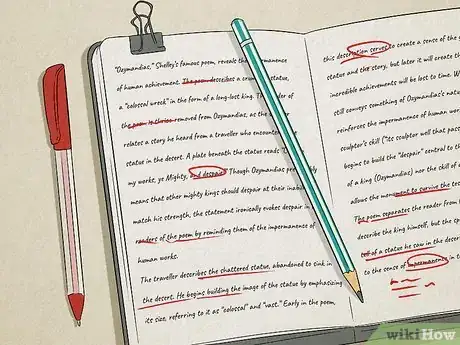 "Ozymandias," Shelley's famous poem, reveals the permanence
of human achievement. The poem describes a crum statue,
a "colossal wreck" in the form of a long-lost king. Th der of
the poem is thrice removed from Ozymandias, as the
relates a story he heard from a traveller who encounte
statue in the desert. A plate beneath the statue reads
my works, ye Mighty, and despair!" Though Ozymandias pre bly
means that other mighty kings should despair at their inabi
match his strength, the statement ironically evokes despair in
readers of the poem by reminding them of the impermanence of
human works.
The traveller describes the shattered statue, abandoned to sink in
the desert. He begins building the image of the statue by emphasizing
its size, referring to it as "colossal" and "vast." Early in the poem,
this description serves to create a sense of the g
statue and the story, but later it will create th
incredible achievements will be lost to time. W
still conveys something of Ozymandias's natu
reinforces the impermanence of human wor
sculptor's skill ("its sculptor well that pass
begins to build the "despair" central to th
of a king (Ozymandias) nor the skill of a
allows the monument to survive the tes
The poem separates the reader from
describe the king himself, but the sp
tell of a statue he saw in the desert
to the sense of impermanence in t
wikiHow